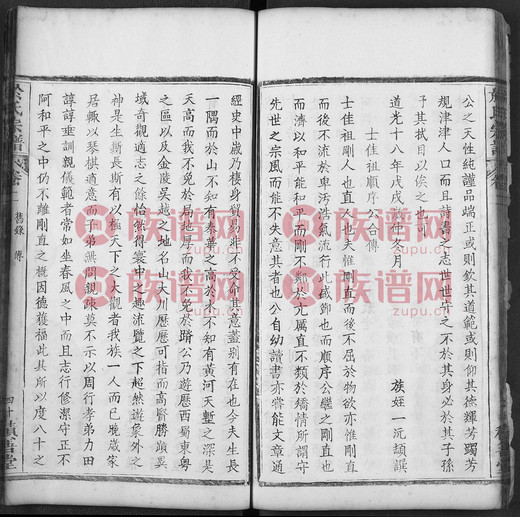 公之天性純謹品端正或則欽其道範或則仰其德輝罔芳
規津津人口而且詩書之志世世守之不於其身必於其子孫
予其拭目以俟之也
道光十八年戊戌歲仲冬月
族姪一沅頡譔
士佳祖順序公合傳
士佳祖剛人也直人也夫惟剛直而後不屈於物欲亦惟剛直
而不失為卑污浩氣流行此盛鄧也而順序公繼之剛直
而濟以和平剛而不鄰於亢厲直不類於矯情所謂守
先世之宗風而能不失意其者也公自幼讀書亦嘗能文章通
經史中歲乃棲身貿易非不受命其意蓋別有在也今夫生長
一隅而於山不知有泰華之高於水不知有黃河天塹之深是
天高而我不免於局地厚而我不免於蹐公乃遊歷西蜀東粵
之區以及金陵吳越之地名山大川歷歷可指而高賢勝蹟異
域奇觀適志之餘倍徵得寰中之趣流覽之下超然遊象外之
神是生斯長斯有以極天下之大觀者我族一人而已晚歲家
居輒以琴棋適意而子弟無間親疎莫不示以周行孝弟力田
諄諄垂訓親儀範者常如坐春風之中而且志行修潔守正不
阿和平之中仍不離剛直之概因德獲福此其所以度八十之
氏宗譜
卷一
舊錄 傳
四十
積善堂
族谱网